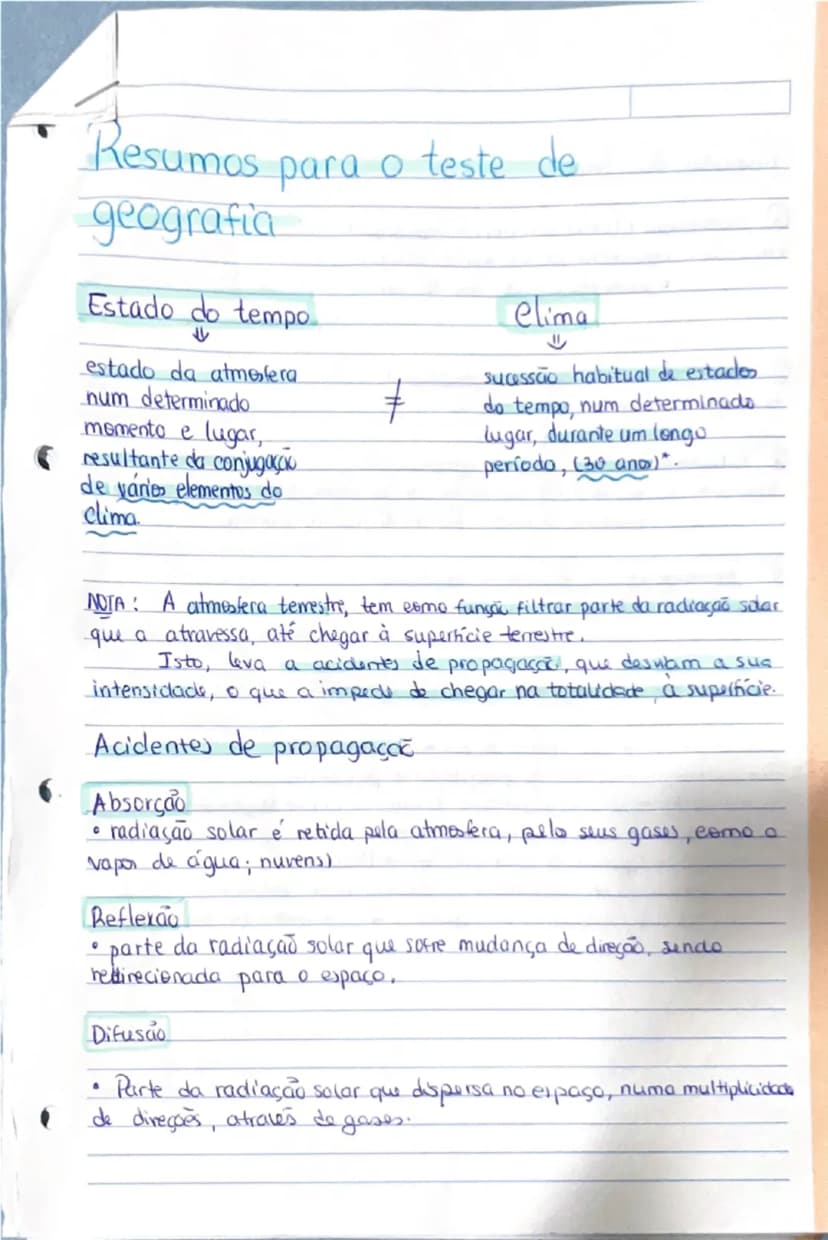 Resumos para o teste de
geografia
Estado do tempo
⇓
estado da atmosfera
num determinado
momento e lugar,
resultante da conjugação
de vários elementos do
clima.
≠
Clima
⇓
sucessão habitual de estados
do tempo, num determinado
lugar, durante um longo
período, (30 anos)*.
NOTA: A atmosfera terrestre, tem como função, filtrar parte da radiação solar
que a atravessa, até chegar à superfície terrestre.
Isto, leva a acidentes de propagação, que desviam a sua
intensidade, o que a impede de chegar na totalidade à superfície.
Acidentes de propagação
Absorção
• radiação solar é retida pela atmosfera, pelo seus gases, como o
vapor de água; nuvens)
Reflexão
• parte da radiação solar que sofre mudança de direção, sendo
redirecionada para o espaço.
Difusão
• Parte da radiação solar que dispersa no espaço, numa multiplicidade
de direções, através de gases.